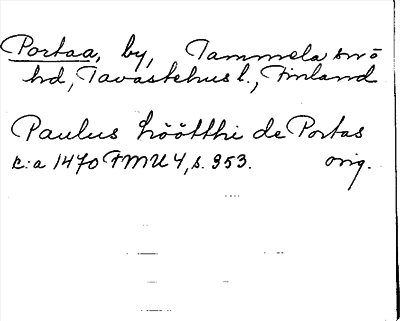 Portaa, by, Tammela snö
hd, Tavastehus l., Finland
Paulus höötthi de Portas
c:a 1470 FMU 4, s. 353. orig.